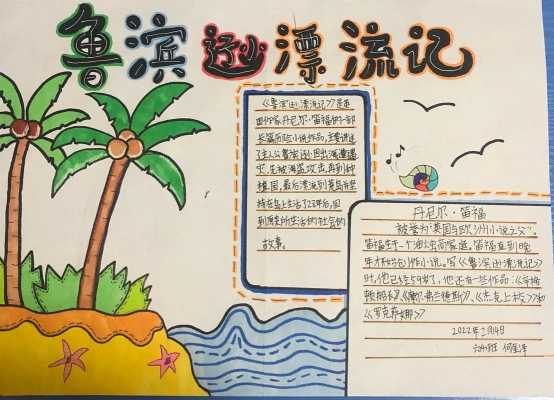 鲁滨逊漂流记
《鲁滨逊漂流记》是英
国作家丹尼尔·笛福的一部
长篇历险小说作品,主要讲述
了主人公鲁滨逊因出海遭遇
灾,先被海盗攻击,再到种
植园,最后漂流到荒岛,并坚
持在岛上生活了28年后,回
到原来所生活的社会的
故事。
丹尼尔·笛福
被誉为"英国与欧洲小说之父"。
笛福生于一个油烛商家庭。笛福直到晚
年才开始创作小说。写《鲁滨逊漂流记》
时,他已经59岁了,他还有一些作品:《辛格
顿船长》、《摩尔·弗兰德斯》、《杰克上校》和
《罗克萨娜》
2022年2月4日